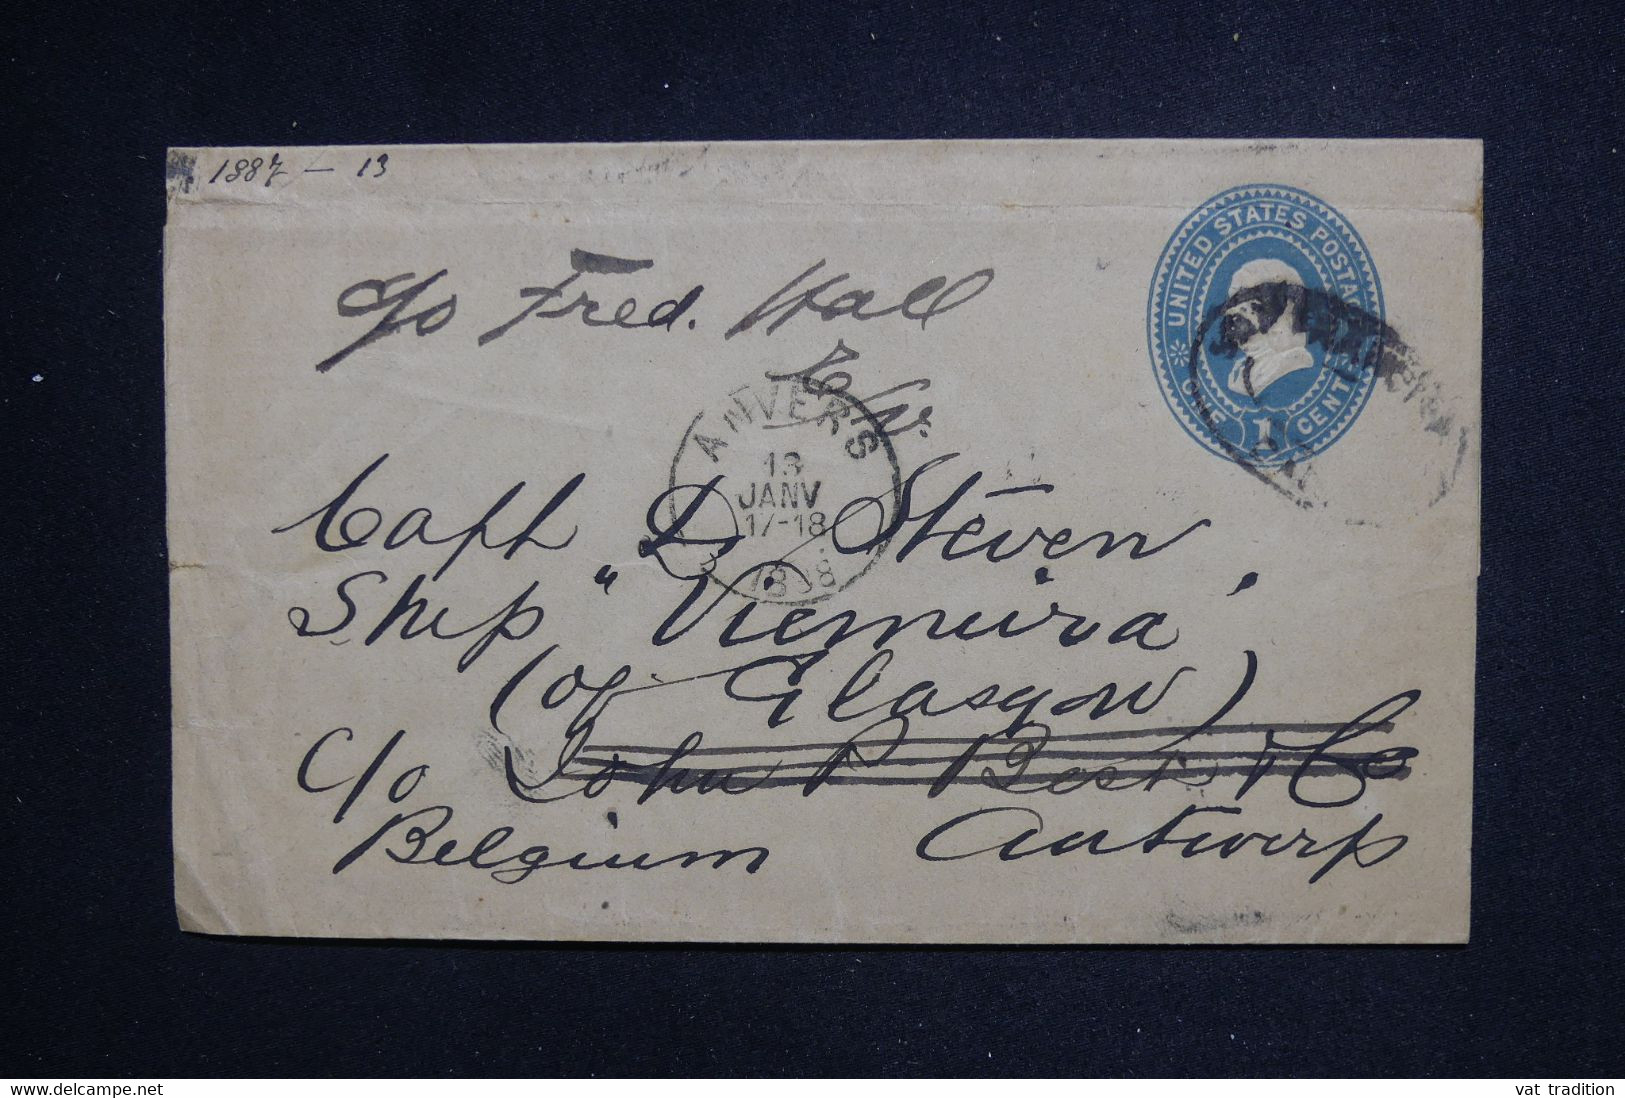 1887 - 13
UNITED STATES POSTAGE
ONE 1 CENT
c/o Fred. Hall
ANVERS
13
JANV
17-18
Capt D Steven
Ship "Viemeira"
(of Glasgow)
c/o John P Best & Co
Belgium Antwerp
delcampe.net
vat_tradition